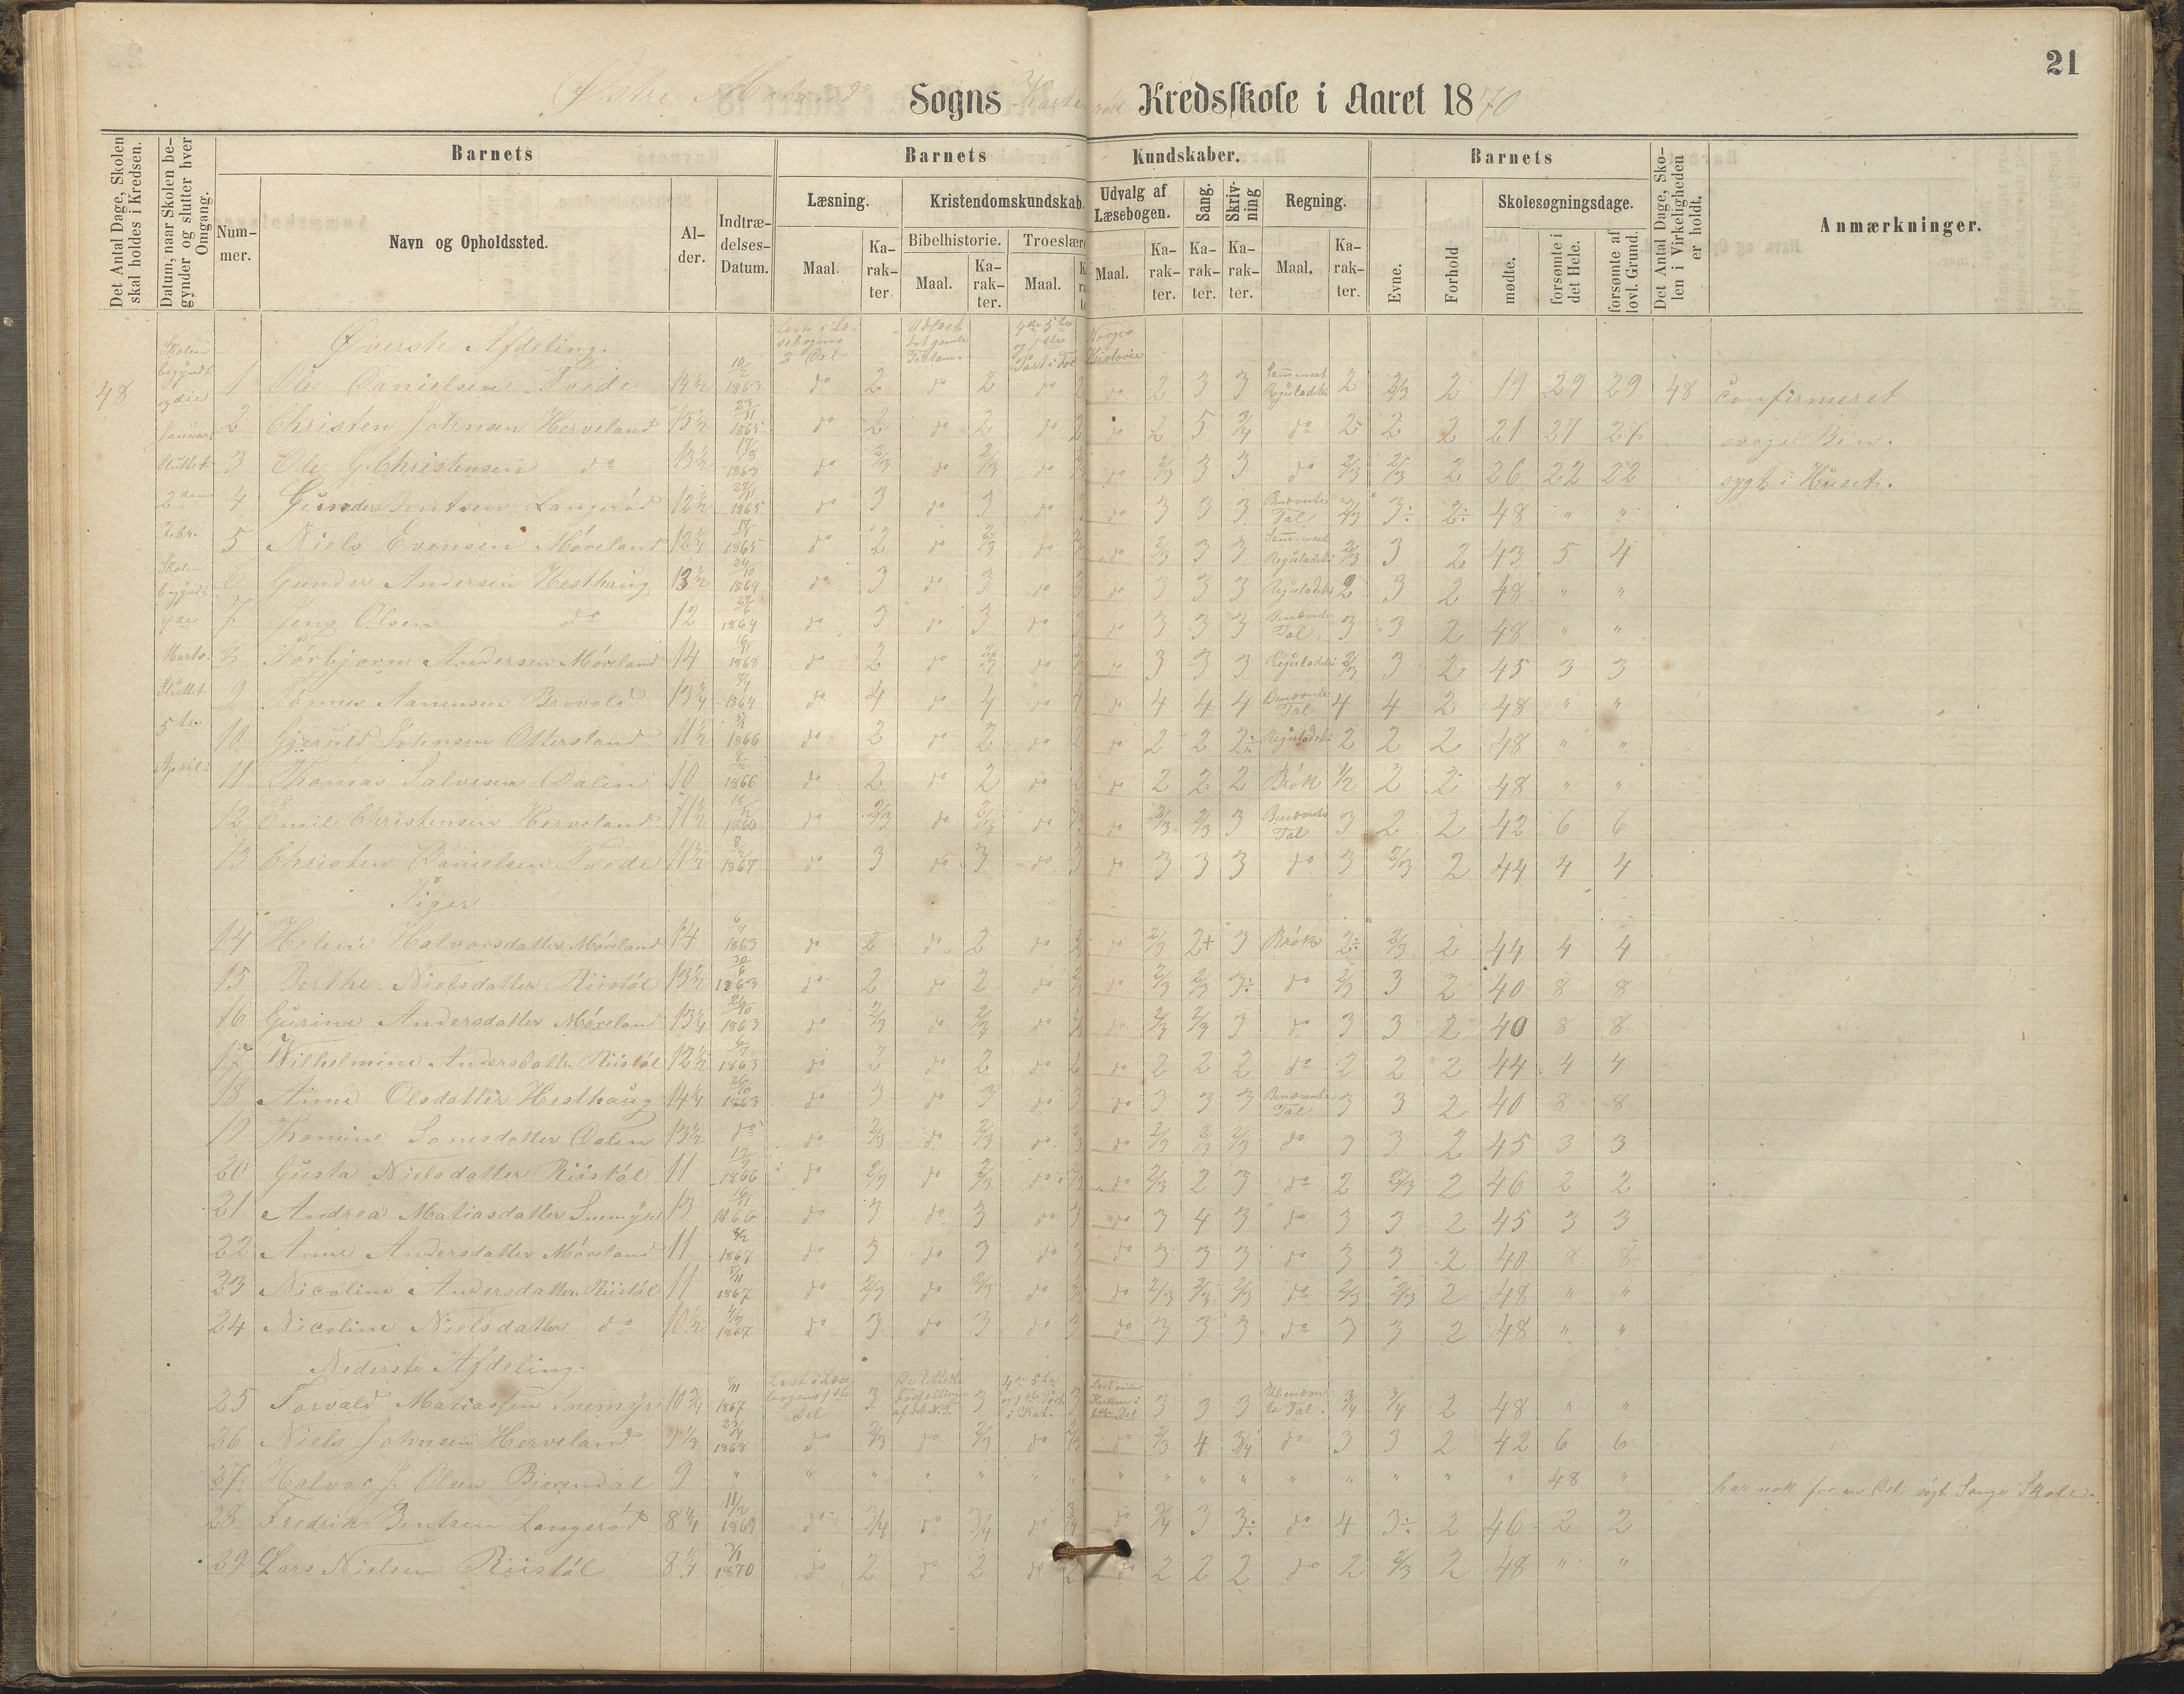 21
Østre Moland Sogns Kredsskole i Aaret 1870
Det Antal Dage, Skolen skal holdes i Kredsen.
Datum, naar Skolen begynder og slutter hver Omgang.
Barnets
Barnets Kundskaber.
Barnets
Det Antal Dage, Skolen i Virkeligheden er holdt.
Anmærkninger.
Nummer.
Navn og Opholdssted.
Alder.
Indtrædelses-Datum.
Læsning.
Kristendomskundskab.
Udvalg af Læsebogen.
Sang.
Skrivning
Regning.
Evne.
Forhold
Skolesøgningsdage.
Bibelhistorie.
Troeslære
Maal.
Karakter.
mødte.
forsømte i det Hele.
forsømte af lovl. Grund.
48
Skolen begyndt 3die Januar Sluttet 2den Febr. Skolen begyndt 7de Marts. Sluttet 5te April.
Øverste Afdeling. Norges Historie
1 Ole Danielsen Tvede 14½ 1863 do 2 do 2 do 2 do 2 3 3 2 2/3 2 19 29 29 48 confirmeret
2 Christen Johnsen Herveland 13½ 23/11 1865 do 2 do 2 do 2 do 2 5 3/4 do 2 2 2 21 27 27 svage Ben.
3 Ole G. Christensen do 13½ 1863 do 2/3 do 2/3 do 2/3 do 2/3 3 3 do 2/3 2/3 2 26 22 22 sygt i Huset.
4 Gunder Bentsen Langerød 12½ 1865 do 3 do 3 do do 3 3 3 Benævnte Tal 2/3 3÷ 2÷ 48 " "
5 Niels Evensen Móreland 12¼ 1865 do 2 do 2/3 do do 2/3 3 3 2/3 3 2 43 5 4
6 Gunder Andersen Hesthaug 13½ 24/10 1864 do 3 do 3 do 3 do 3 3 3 Reguladetri 2 3 2 48 " "
7 Jens Olsen do 12 1864 do 3 do 3 do 3 do 3 3 3 Benævnte Tal 3 3 2 48 " "
8 Torbjorn Andersen Móreland 14 16/11 1868 do 2 do 2/3 do do 3 3 3 Reguladetri 2/3 3 2 45 3 3
9 Tonnes Aanensen Brovold 13¼ 1864 do 4 do 4 do 4 do 4 4 4 Benævnte Tal 4 4 2 48 " "
10 Gjeruld Johnsen Ottersland 11½ 1866 do 2 do 2 do 2 do 2 2 2÷ Reguladetri 2 2 2 48 " "
11 Thomas Salvesen Dalen 10 1866 do 2 do 2 do 2 do 2 2 2 Brök 1/2 2 2 48 " "
12 Emil Christensen Herveland 11½ 1866 do 2/3 do 2/3 do 2/3 do 2/3 2/3 3 Benævnte Tal 3 2 2 42 6 6
13 Christen Danielsen Tvede 11½ 1867 do 3 do 3 do 3 do 3 3 3 do 3 2/3 2 44 4 4
Piger
14 Helene Halvorsdatter Móreland 14 1863 do 2 do 2 do 2 do 2/3 2+ 3 Brök 2÷ 2/3 2 44 4 4
15 Berthe Nielsdatter Riistöl 13½ 30/6 1863 do 2 do 2 do 2/3 do 2/3 2/3 3÷ do 2/3 3 2 40 8 8
16 Gurine Andersdatter Móreland 13¼ 26/10 1863 do 2/3 do 2/3 do do 2/3 2/3 3 do 3 3 2 40 8 8
17 Wilhelmine Andersdattr. Riistöl 12½ 1863 do 2 do 2 do 2 do 2 2 2 do 2 2 2 44 4 4
18 Anne Olsdatter Hesthaug 14¼ 26/10 1863 do 3 do 3 do 3 do 3 3 3 Benævnte Tal 3 3 2 40 8 8
19 Thomine Sonesdatter Dalen 13½ do do 2/3 do 2/3 do do 2/3 2/3 2/3 do 3 3 2 45 3 3
20 Gusta Nielsdatter Riistöl 11 1866 do 2/3 do 2/3 do do 2/3 2 3 do 2 2/3 2 46 2 2
21 Andrea Matiasdatter Snemyr 13 1866 do 3 do 3 do 3 do 3 4 3 do 3 3 2 45 3 3
22 Anne Andersdatter Móreland 11 1867 do 3 do 3 do 3 do 3 3 3 do 3 3 2 40 8 8
23 Nicoline Andersdatter Riistöl 11 5/11 1867 do 2/3 do 2/3 do do 2/3 2/3 2/3 do 2/3 2/3 2 48 " "
24 Nicoline Nielsdatter do 10½ 1867 do 3 do 3 do 3 do 3 3 3 do 3 3 2 48 " "
Nederste Afdeling.
25 Torvald Matiassen Snemyr 10¾ 1867 3 3 3 3 3 3 Ubenævnte Tal. 3/4 3/4 2 48 " "
26 Niels Johnsen Herveland 1868 do 2/3 do 2/3 do do 2/3 4 3/4 do 3 3 2 42 6 6
27 Halvor J. Olsen Bjorendal 9 " " " " " " " " " " " " " " " " 48 " har nok for en Del søgt Songe Skole.
28 Fredrik Bentsen Langerød 8¼ 11/2 1869 do 3/4 do 3/4 do 3/4 do 3/4 3 3÷ do 4 3÷ 2 46 2 2
29 Lars Nielsen Riistöl 8¼ 3/1 1870 do 2 do 2 do 2 do 2 2 2 do 2 2/3 2 48 " "